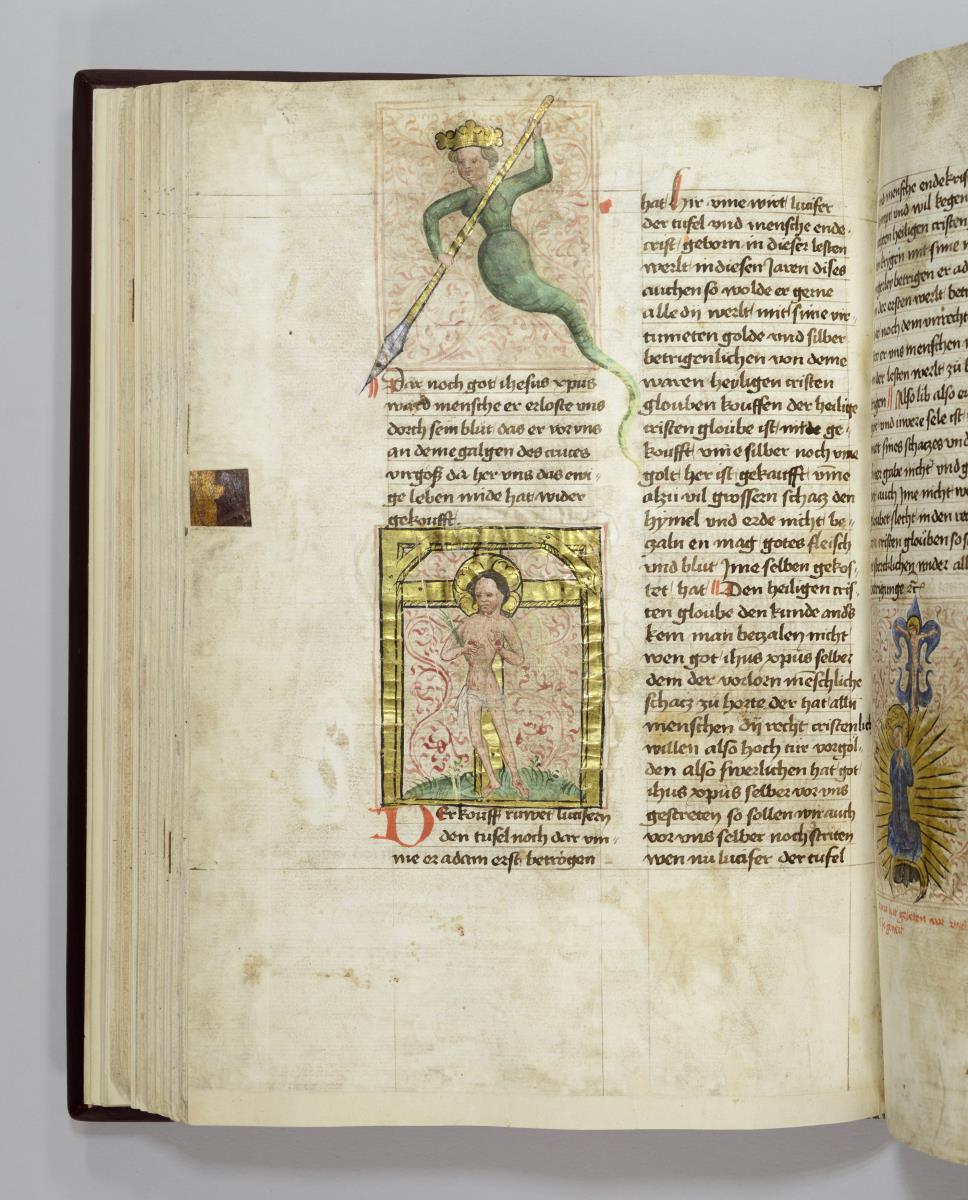 Dar noch got ihesus xpus
ward mensche er erloste vns
dorch sein blut das er vor vns
an deme galgen des cruces
virgoß da her vns das ewi-
ge leben mide hat wider
gekoufft.
Der kouff ruwet lucifern
den tufel noch dar vm-
me er adam erst betrogen
hat hir vme wirt lucifer
der tufel vnd mensche ende-
crist geborn in dieser lesten
werlt in diesen Jaren dises
so wolde er gerne
alle dij werlt mit sime vir-
tumeten golde vnd silber
betrigenlichen von deme
waren heyligen cristen
glouben kouffen der heilige
cristen gloube ist nicht ge-
koufft vme silber noch vme
golt her ist gekaufft vme
alzu vil grossern schacz den
hymel vnd erde nicht be-
czaln en mag gotes fleisch
vnd blut Jme selben gekos-
tet hat Den heiligen cris-
ten gloube den kunde anders
kein man betzalen nicht
wen got ihus xpus selber
dem der vorlorn menschliche
schacz zu horte der hat alln
menschen dij recht cristenlich
willen also hoch vorgol-
den also swerlichen hat got
ihus xpus selber vor vns
gestreten so sollen wir auch
vor vns selber noch striten
wen nu lucifer der tufel
mensche endekris
vnd wil kegen
heiligen cristen
mit sime
betrigen er ad
der ersten werlt betr
noch dem vnrecht
er vns menschen
der lesten werlt zu b
Also lib also ei
vnd vwere sele ist
sines schaczes vnd
gabe nicht vnd g
auch Jme nicht
slecht in den
cristen glouben so
wider all